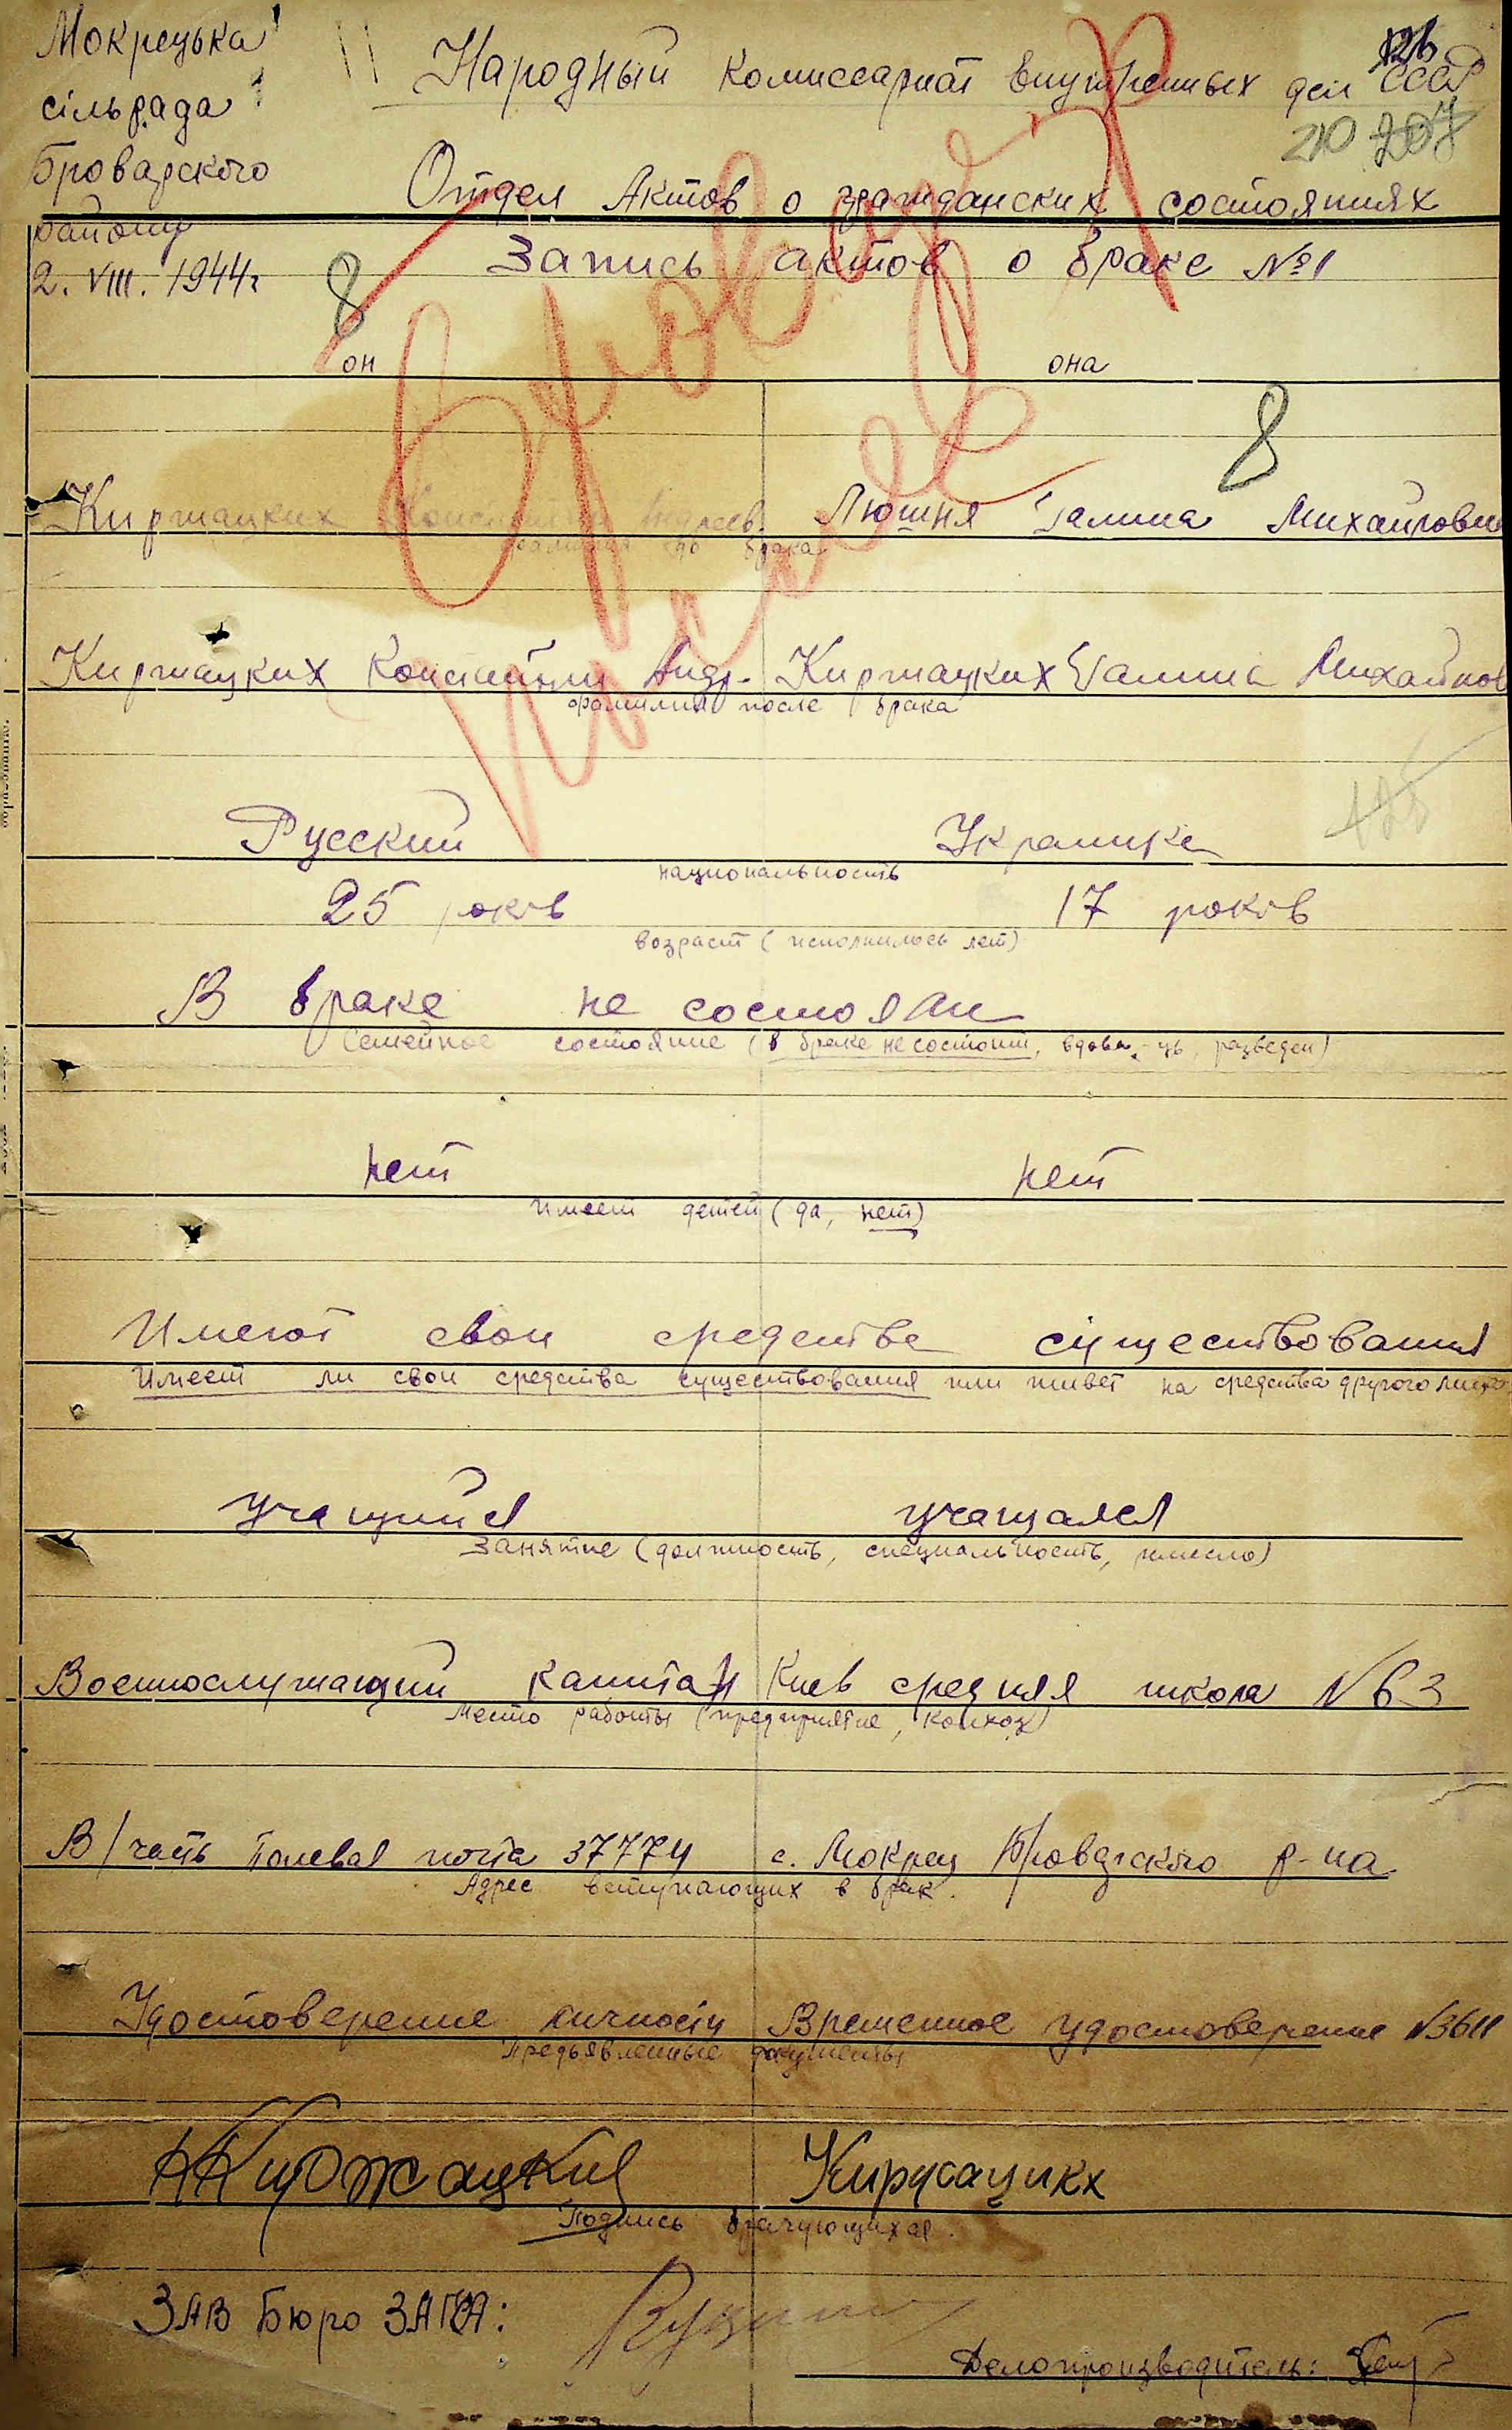 Мокрецька
сільрада
Броварского
району
2. VIII. 1944г
Народный комиссариат внутренных дел СССР
126
210 207
Отдел Актов о гражданских состояниях
Запись актов о браке №1
8
он она
8
Киржацких Константин Андреев. Люшня Галина Михайловн
фамилия до брака
Киржацких Константин Андр. Киржацких Галина Михайлов
фамилия после брака
Русский Украинка
национальность
25 років 17 років
возраст (исполнилось лет)
В браке не состояли
Семейное состояние (в браке не состоит, вдова,-ць, разведен)
нет нет
имеет детей (да, нет)
Имеют свои средства существования
Имеет ли свои средства существования или живет на средства другого лица
учащийся учащаяся
Занятие (должность, специальность, ремесло)
Военнослужащий капитан Киев средняя школа №63
Место работы (предприятие, колхоз)
В/часть Полевая почта 37774 с. Мокрец Броварского р-на
Адрес вступающих в брак.
Удостоверение личности Временное удостоверение №3611
Предъявленные документы
Киржацких Киржацких
Подпись брачующихся.
ЗАВ Бюро ЗАГСА:
Делопроизводитель: